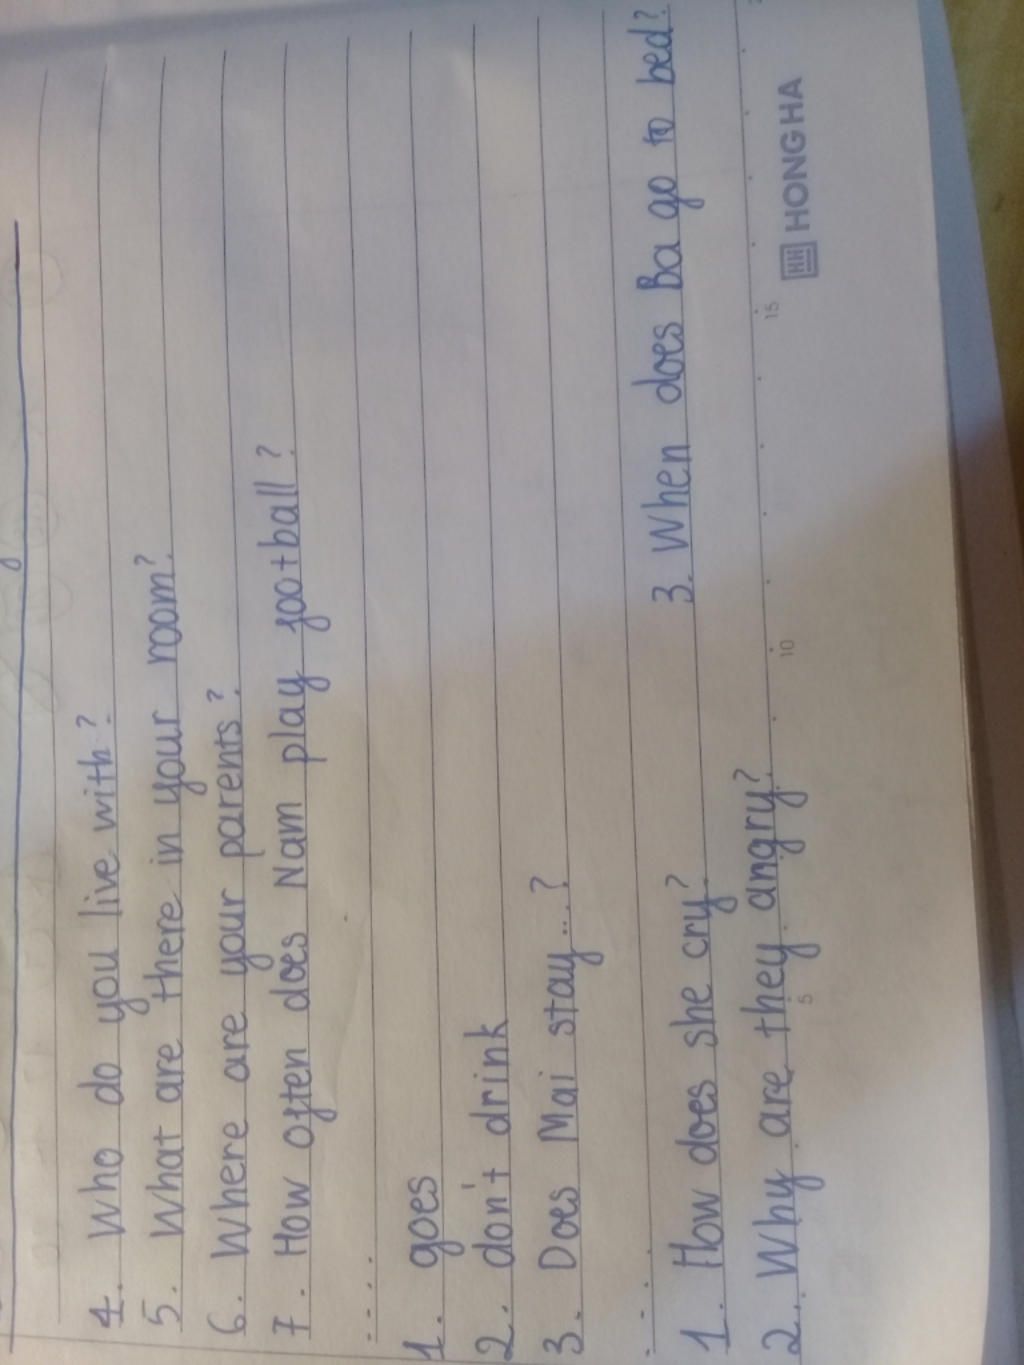 4. Who do you live with?
5. What are there in your room?
6. Where are your parents?
7. How often does Nam play football?
....
1. goes
2. don't drink
3. Does Mai stay...?
...
1. How does she cry? 3. When does Ba go to bed?
2. Why are they angry?
5 10 15
HH HONG HA